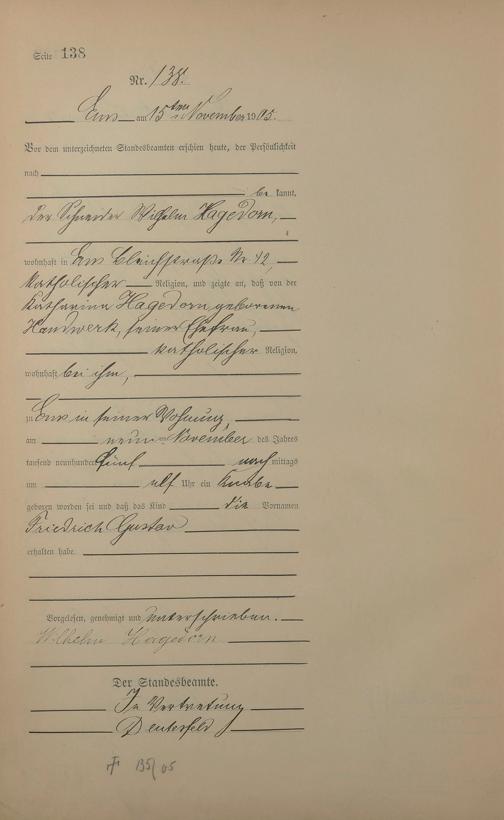 Seite 138
Nr. 138.
Ems am 15ten November 1905.
Vor dem unterzeichneten Standesbeamten erschien heute, der Persönlichkeit
nach
be kannt,
der Schneider Wilhelm Hagedorn,
wohnhaft in Ems Bleichstraße Nr 12,
katholischer Religion, und zeigte an, daß von der
Katharina Hagedorn geborenen
Handwerk, seiner Ehefrau,
katholischer Religion,
wohnhaft bei ihm,
zu Ems in seiner Wohnung,
am neunten November des Jahres
tausend neunhundert fünf nach mittags
um elf Uhr ein Knabe
geboren worden sei und daß das Kind die Vornamen
Friedrich Gustav
erhalten habe.
Vorgelesen, genehmigt und unterschrieben.
Wilhelm Hagedorn
Der Standesbeamte.
In Vertretung